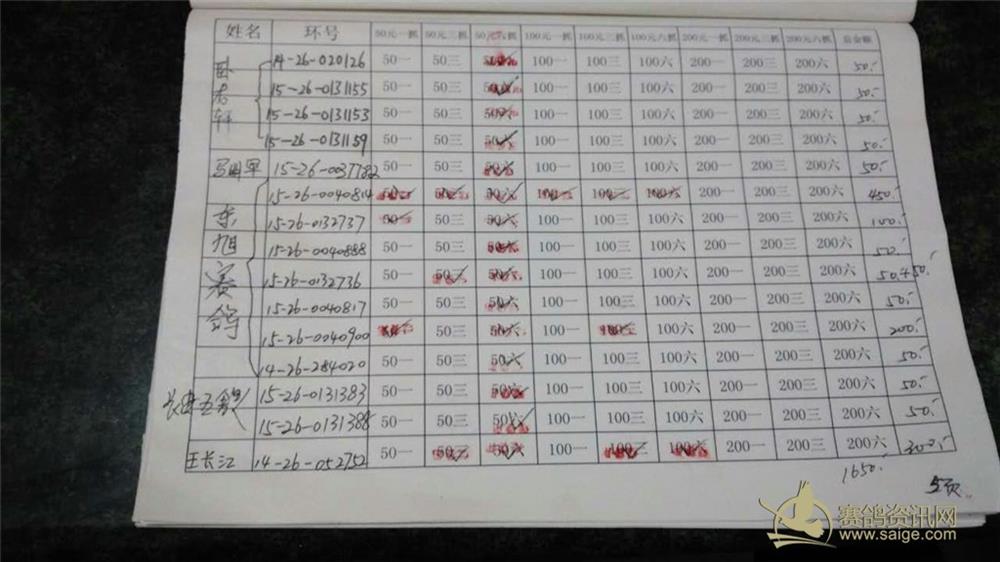 姓名 环号 50元一抓 50元三抓 50元六抓 100元一抓 100元三抓 100元六抓 200元一抓 200元三抓 200元六抓 总金额
14-26-020126 50一 50三 50六 100一 100三 100六 200一 200三 200六 50.-
15-26-0131155 50一 50三 50六 100一 100三 100六 200一 200三 200六 50.-
15-26-0131153 50一 50三 50六 100一 100三 100六 200一 200三 200六 50.-
15-26-0131159 50一 50三 50六 100一 100三 100六 200一 200三 200六 50.-
15-26-0037782 50一 50三 50六 100一 100三 100六 200一 200三 200六 50.-
15-26-0040814 50一 50三 50六 100一 100三 100六 200一 200三 200六 450.-
15-26-0132737 50一 50三 50六 100一 100三 100六 200一 200三 200六 100.-
15-26-0040888 50一 50三 50六 100一 100三 100六 200一 200三 200六 50.-
15-26-0132736 50一 50三 50六 100一 100三 100六 200一 200三 200六 50+50.-
15-26-0040817 50一 50三 50六 100一 100三 100六 200一 200三 200六 50.-
15-26-0040900 50一 50三 50六 100一 100三 100六 200一 200三 200六 200.-
14-26-284020 50一 50三 50六 100一 100三 100六 200一 200三 200六 50.-
15-26-0131383 50一 50三 50六 100一 100三 100六 200一 200三 200六 50.-
15-26-0131388 50一 50三 50六 100一 100三 100六 200一 200三 200六 50.-
王长江 14-26-052752 50一 50三 50六 100一 100三 100六 200一 200三 200六 300.-
1650.-
5页
赛鸽资讯网
www.saige.com